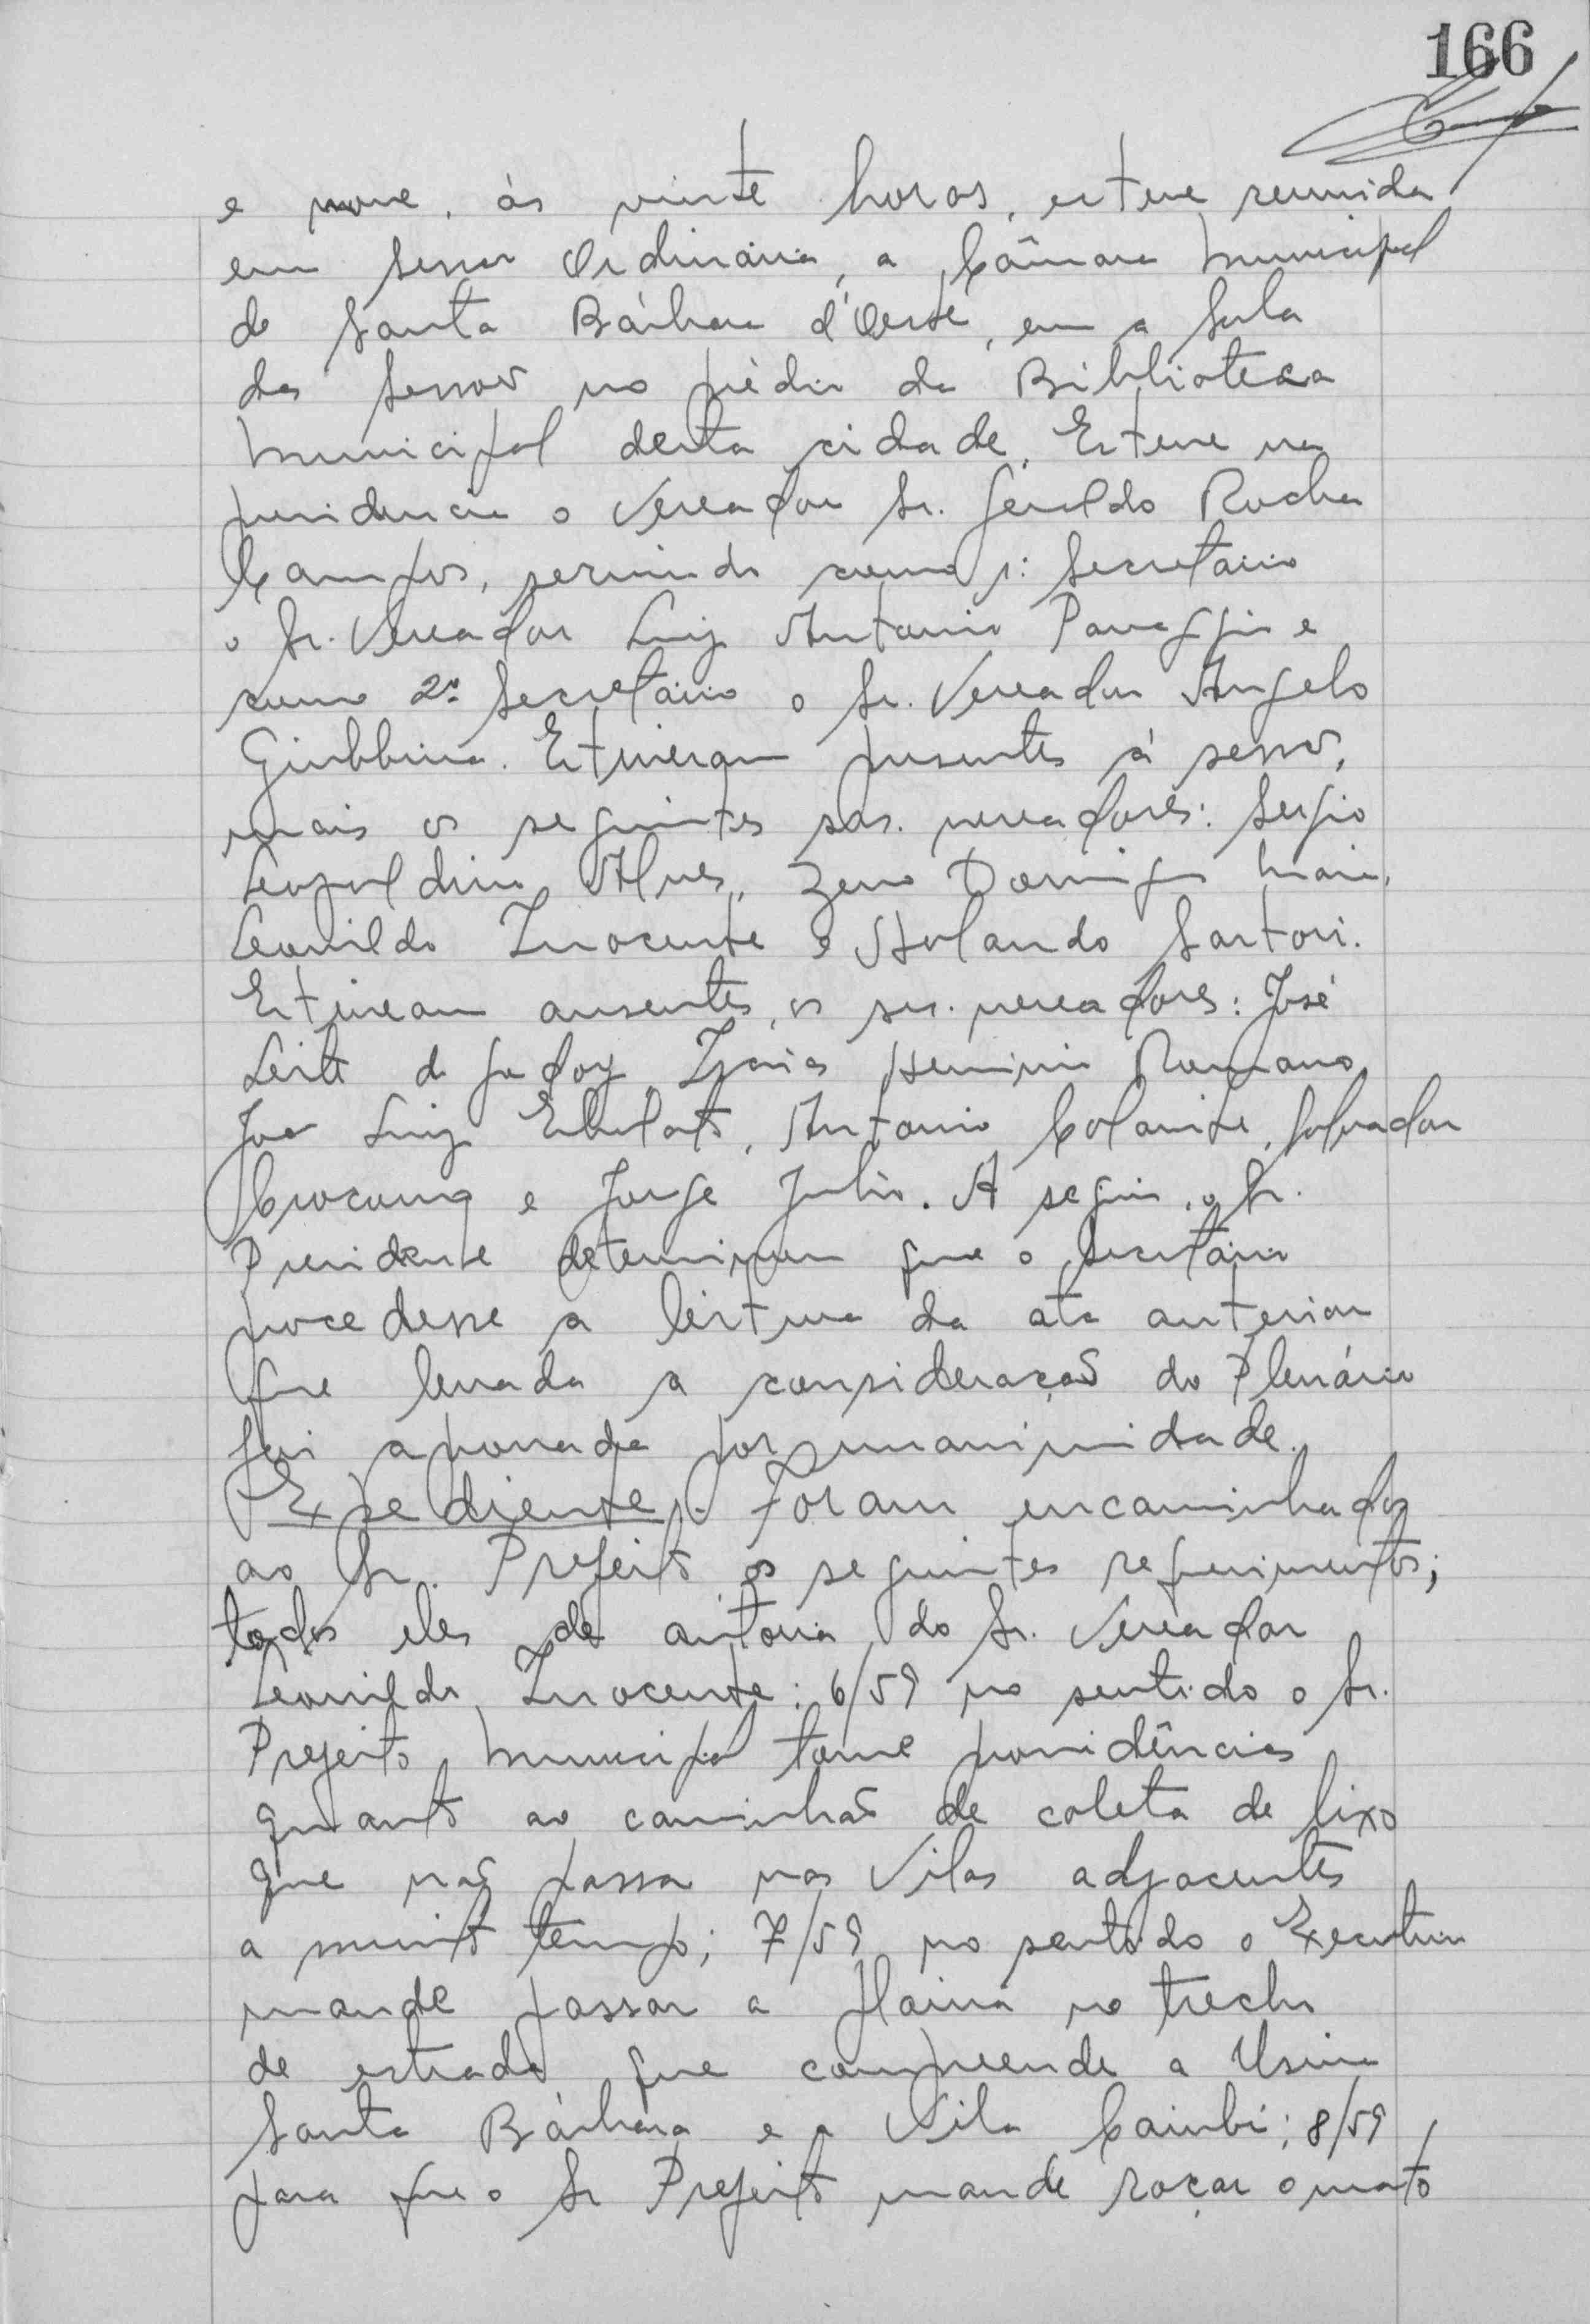 166
e nove, às vinte horas, esteve reunida
em sessão Ordinária, a Câmara Municipal
de Santa Bárbara d'Oeste, em a Sala
das Sessões no prédio da Biblioteca
Municipal desta cidade. Esteve na
presidencia o Vereador Sr. Geraldo Rocha
Campos, servindo como 1º Secretário
o Sr. Vereador Luiz Antonio Panaggio e
como 2º Secretário o Sr. Vereador Angelo
Giubbina. Estiveram presentes à sessão,
mais os seguintes srs. vereadores: Sergio
Leopoldino Alves, Zeno Domingos Maia,
Leonildo Inocente e Orlando Sartori.
Estiveram ausentes, os srs. vereadores: José
Leite de Godoy, Isaias Herminio Romano,
João Luiz, Antonio, Salvador
e Jorge Julio. A seguir, o Sr.
Presidente determinou que o secretário
procedesse a leitura da ata anterior
que levada a consideração do Plenário
foi aprovada por unanimidade.
Expediente: Foram encaminhados
ao Sr. Prefeito os seguintes requerimentos;
todos eles de autoria do Sr. Vereador
Leonildo Inocente: 6/59 no sentido o Sr.
Prefeito Municipal tome providências
quanto ao caminhão de coleta de lixo
que não passa nas Vilas adjacentes
a muito tempo; 7/59 no sentido o Executivo
mande passar a plaina no trecho
de estrada que compreende a Usina
Santa Bárbara e a Vila Caiubi; 8/59
para que o Sr Prefeito mande roçar o mato